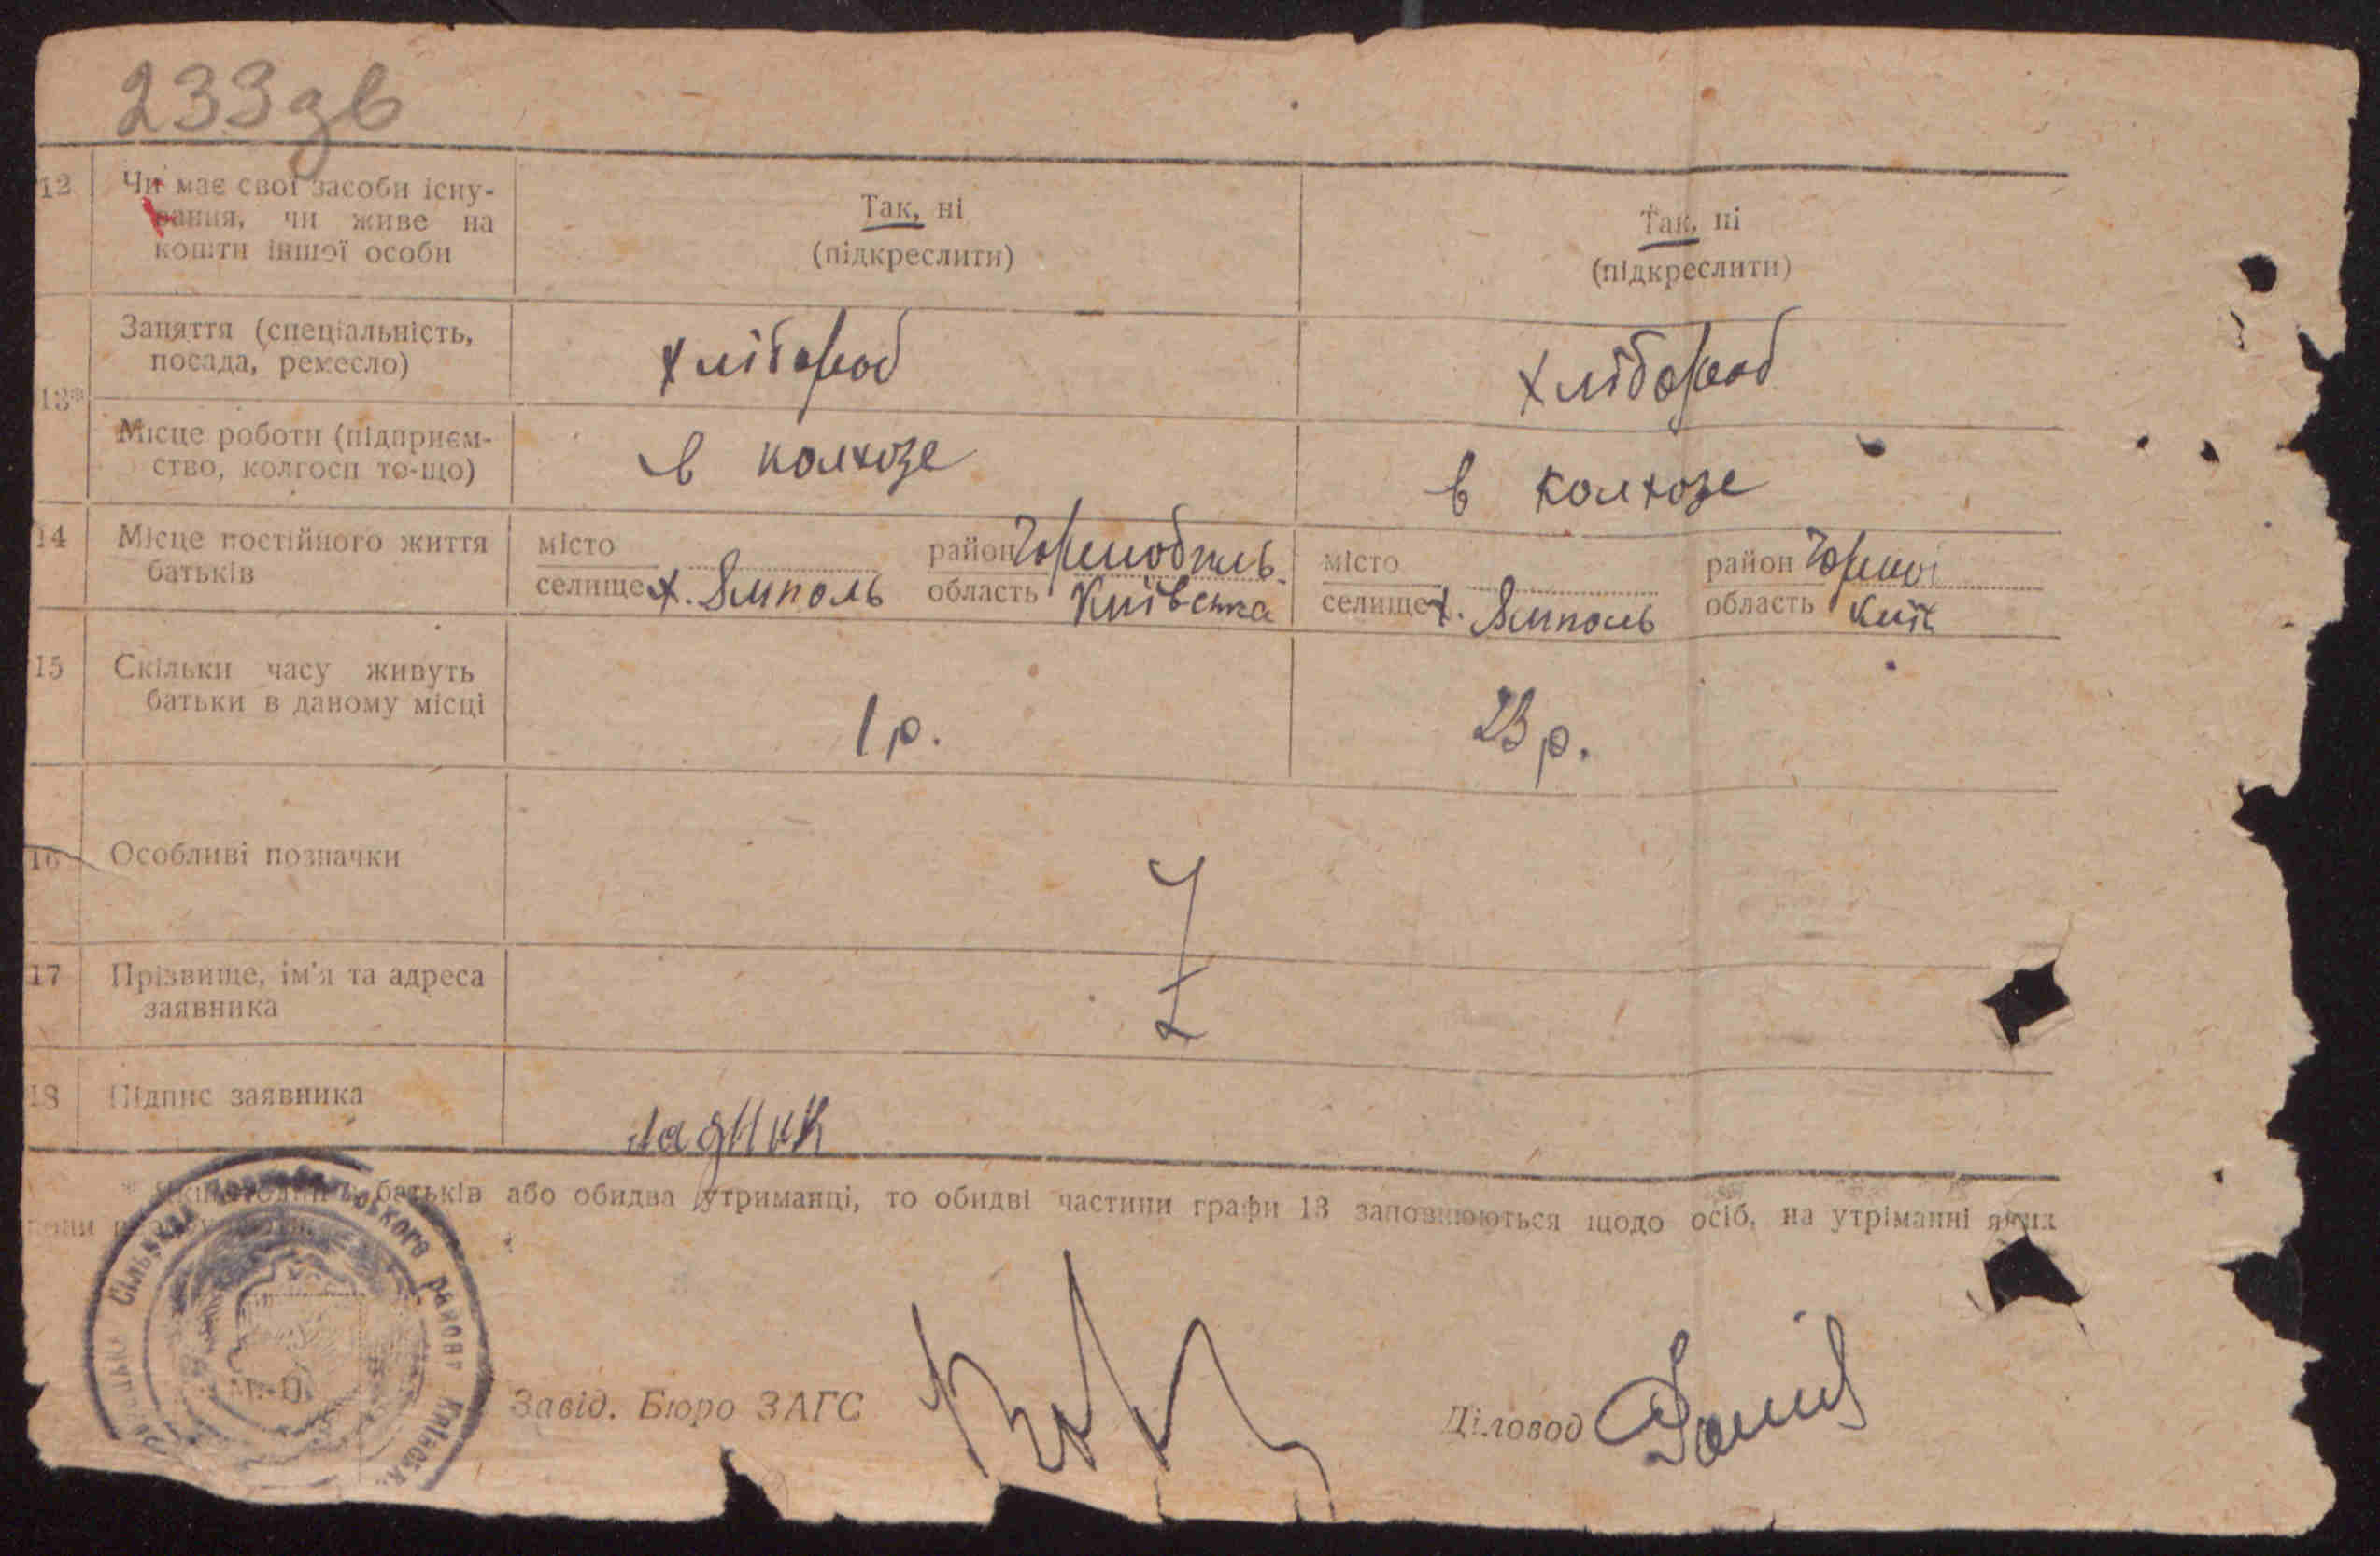 233зв
12 Чи має свої засоби існу-
вання, чи живе на
кошти іншої особи
Так, ні
(підкреслити)
Так, ні
(підкреслити)
13*
Заняття (спеціальність,
посада, ремесло)
хлібороб
хлібороб
Місце роботи (підприєм-
ство, колгосп то-що)
в колхозе
в колхозе
14 Місце постійного життя
батьків
місто
селище х. Ямполь
район Чорнобиль
область Київська
місто
селище х. Ямполь
район Чорноб
область Київ
15 Скільки часу живуть
батьки в даному місці
1 р.
23 р.
16 Особливі позначки
17 Прізвище, ім'я та адреса
заявника
18 Підпис заявника
* Якщо один з батьків або обидва утриманці, то обидві частини графи 13 заповнюються щодо осіб, на утріманні яких
вони
Сільська району Київськ.
М. П.
Завід. Бюро ЗАГС
Діловод